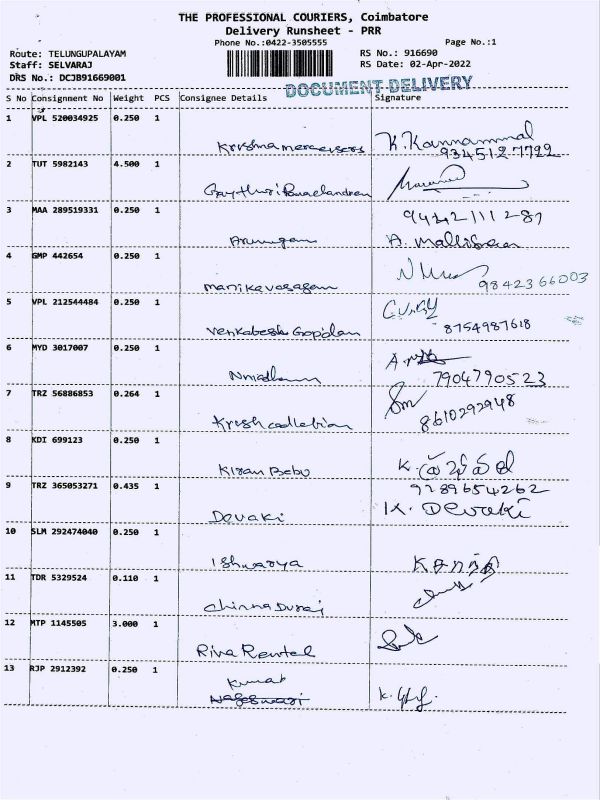 THE PROFESSIONAL COURIERS, Coimbatore
Delivery Runsheet - PRR
Phone No.:0422-3505555
Page No.:1
Route: TELUNGUPALAYAM
RS No.: 916690
Staff: SELVARAJ
RS Date: 02-Apr-2022
DRS No.: DCJB91669001
DOCUMENT DELIVERY
S No Consignment No Weight PCS Consignee Details Signature
1 VPL 520034925 0.250 1
K. Kannammal
9345127722
2 TUT 5982143 4.500 1
3 MAA 289519331 0.250 1
Arumugam
A.
4 GMP 442654 0.250 1
manikavasagam
9842366003
5 VPL 212544484 0.250 1
Venkatesh Gopalan
8754987618
6 MYD 3017007 0.250 1
7904790523
7 TRZ 56886853 0.264 1
8610292948
8 KDI 699123 0.250 1
Kiran Bebu
K.
9 TRZ 365053271 0.435 1
9289654262
Devaki K. Devaki
10 SLM 292474040 0.250 1
Ishwarya
11 TDR 5329524 0.110 1
Chinna Durai
12 MTP 1145505 3.000 1
Riva Rentel
13 RJP 2912392 0.250 1
Kumar
Nageswari K.